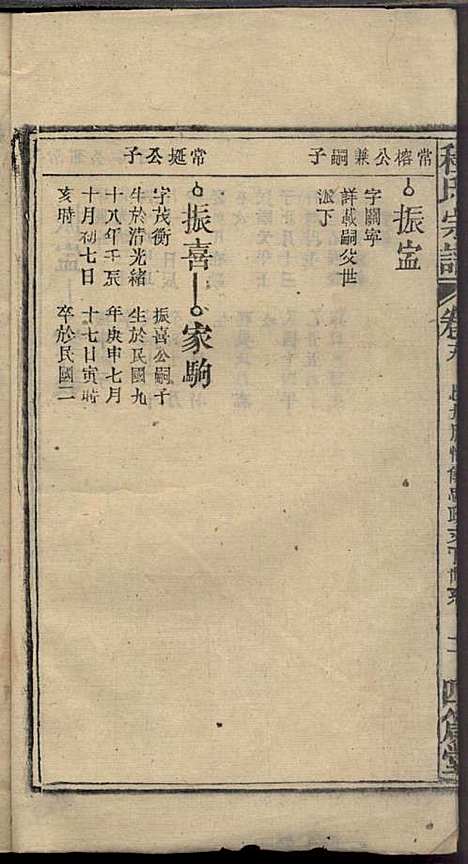 程氏宗譜
卷
常榕公兼嗣子
振盆
字關寧
詳載嗣父世
派下
常埏公子
振喜
字茂衡
生於清光緒
十八年壬辰
十月初七日
亥時
家駒
振喜公嗣子
生於民國九
年庚申七月
十七日寅時
卒於民國二